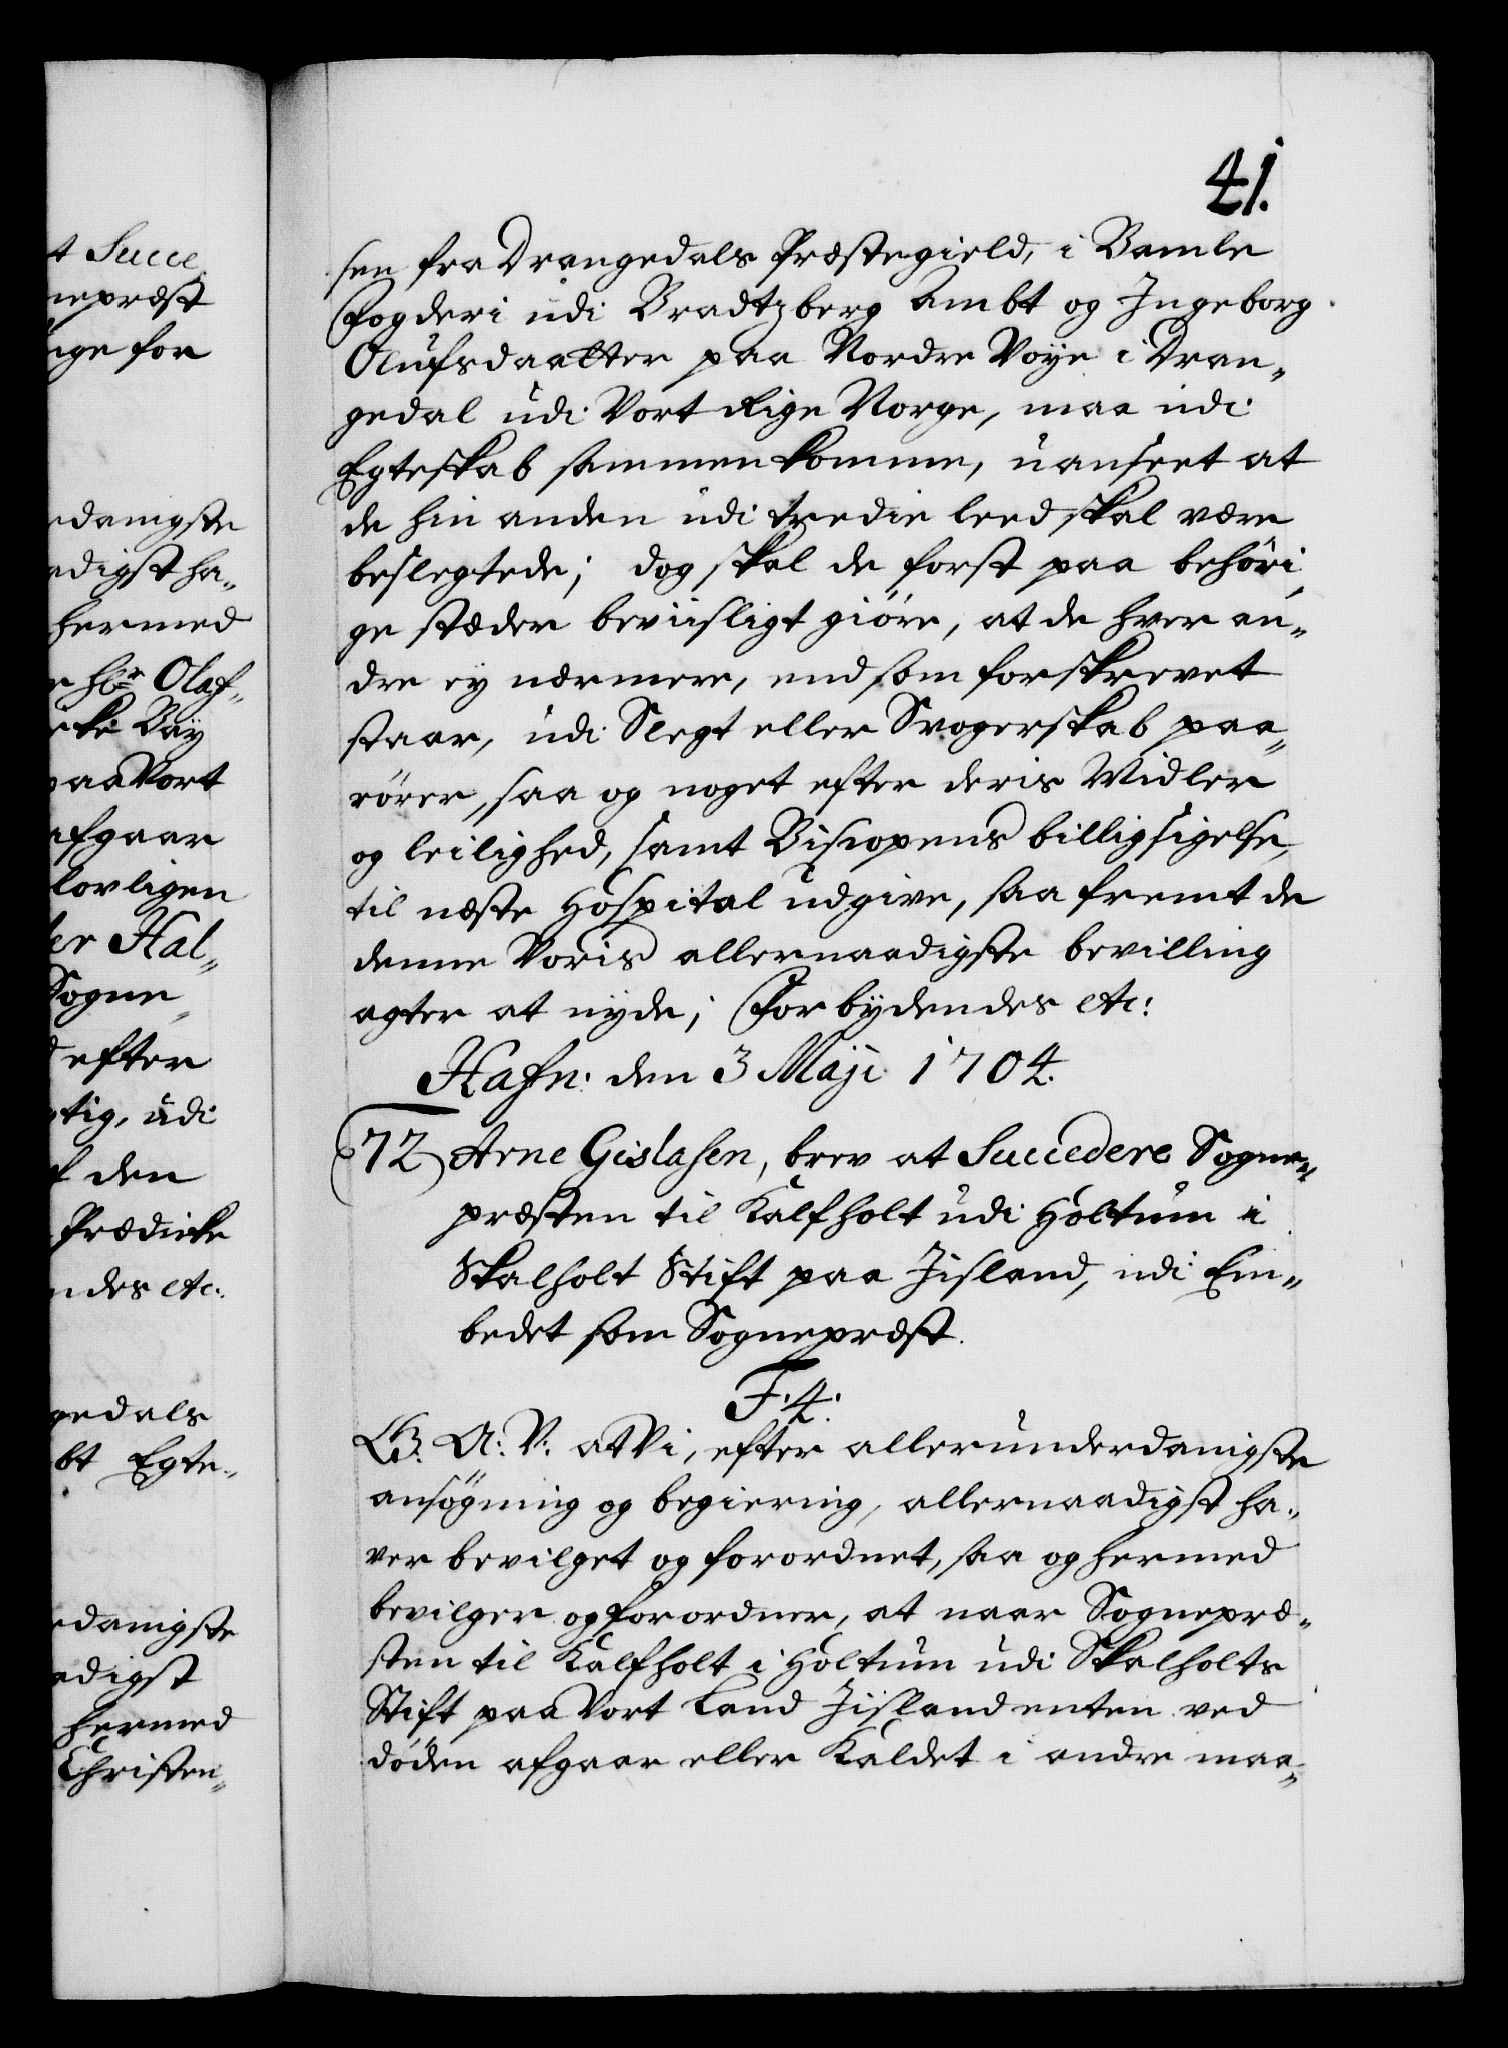 41.
sen fra Drangedals Præstegield, i Bamle
Fogderi udi Bradtzberg Ambt og Ingeborg
Olufsdaatter paa Nordre Voye i Dran„
gedal udi Vort Rige Norge, maa udi
Egteskab sammenkomme, uanseet at
de hin anden udi tredie leed skal være
beslegtede; dog skal de først paa behöri„
ge stæder beviisligt giöre, at de hver an„
dre ey nærmere, end som forskrevet
staar, udi Slegt eller Svogerskab paa„
rörer, saa og noget efter deris Midler
og leilighed, samt Biscopens billigsigelse,
til næste Hospital udgive, saa fremt de
denne Voris allernaadigste bevilling
agter at nyde; Forbydendes etc:
Hafn: den 3 Maji 1704.
72 Arne Gislasen, brev at Succedere Sogne„
præsten til Kalfholt udi Holtum i
Skalholt Stift paa Jisland, udi Em„
bedet som Sognepræst.
F. 4.
G. A: V: at Vi, efter allerunderdanigste
ansögning og begiering, allernaadigst ha„
ver bevilget og forordnet, saa og hermed
bevilger og forordner, at naar Sognepræ„
sten til Kalfholt i Holtum udi Skalholts
Stift paa Vort Land Jisland enten ved
döden afgaar eller Kaldet i andre maa„
t Succe„
nepræst
nge for
rdanigste
adigst ha„
hermed
r Hr Olaf„
paa Vort
afgaar
lovligen
er Hal„
Sogne„
efter
tig, udi
den
Prædicke
ndes etc:
gedals
bt Egte„
rdanigste
adigst
hermed
Christen„